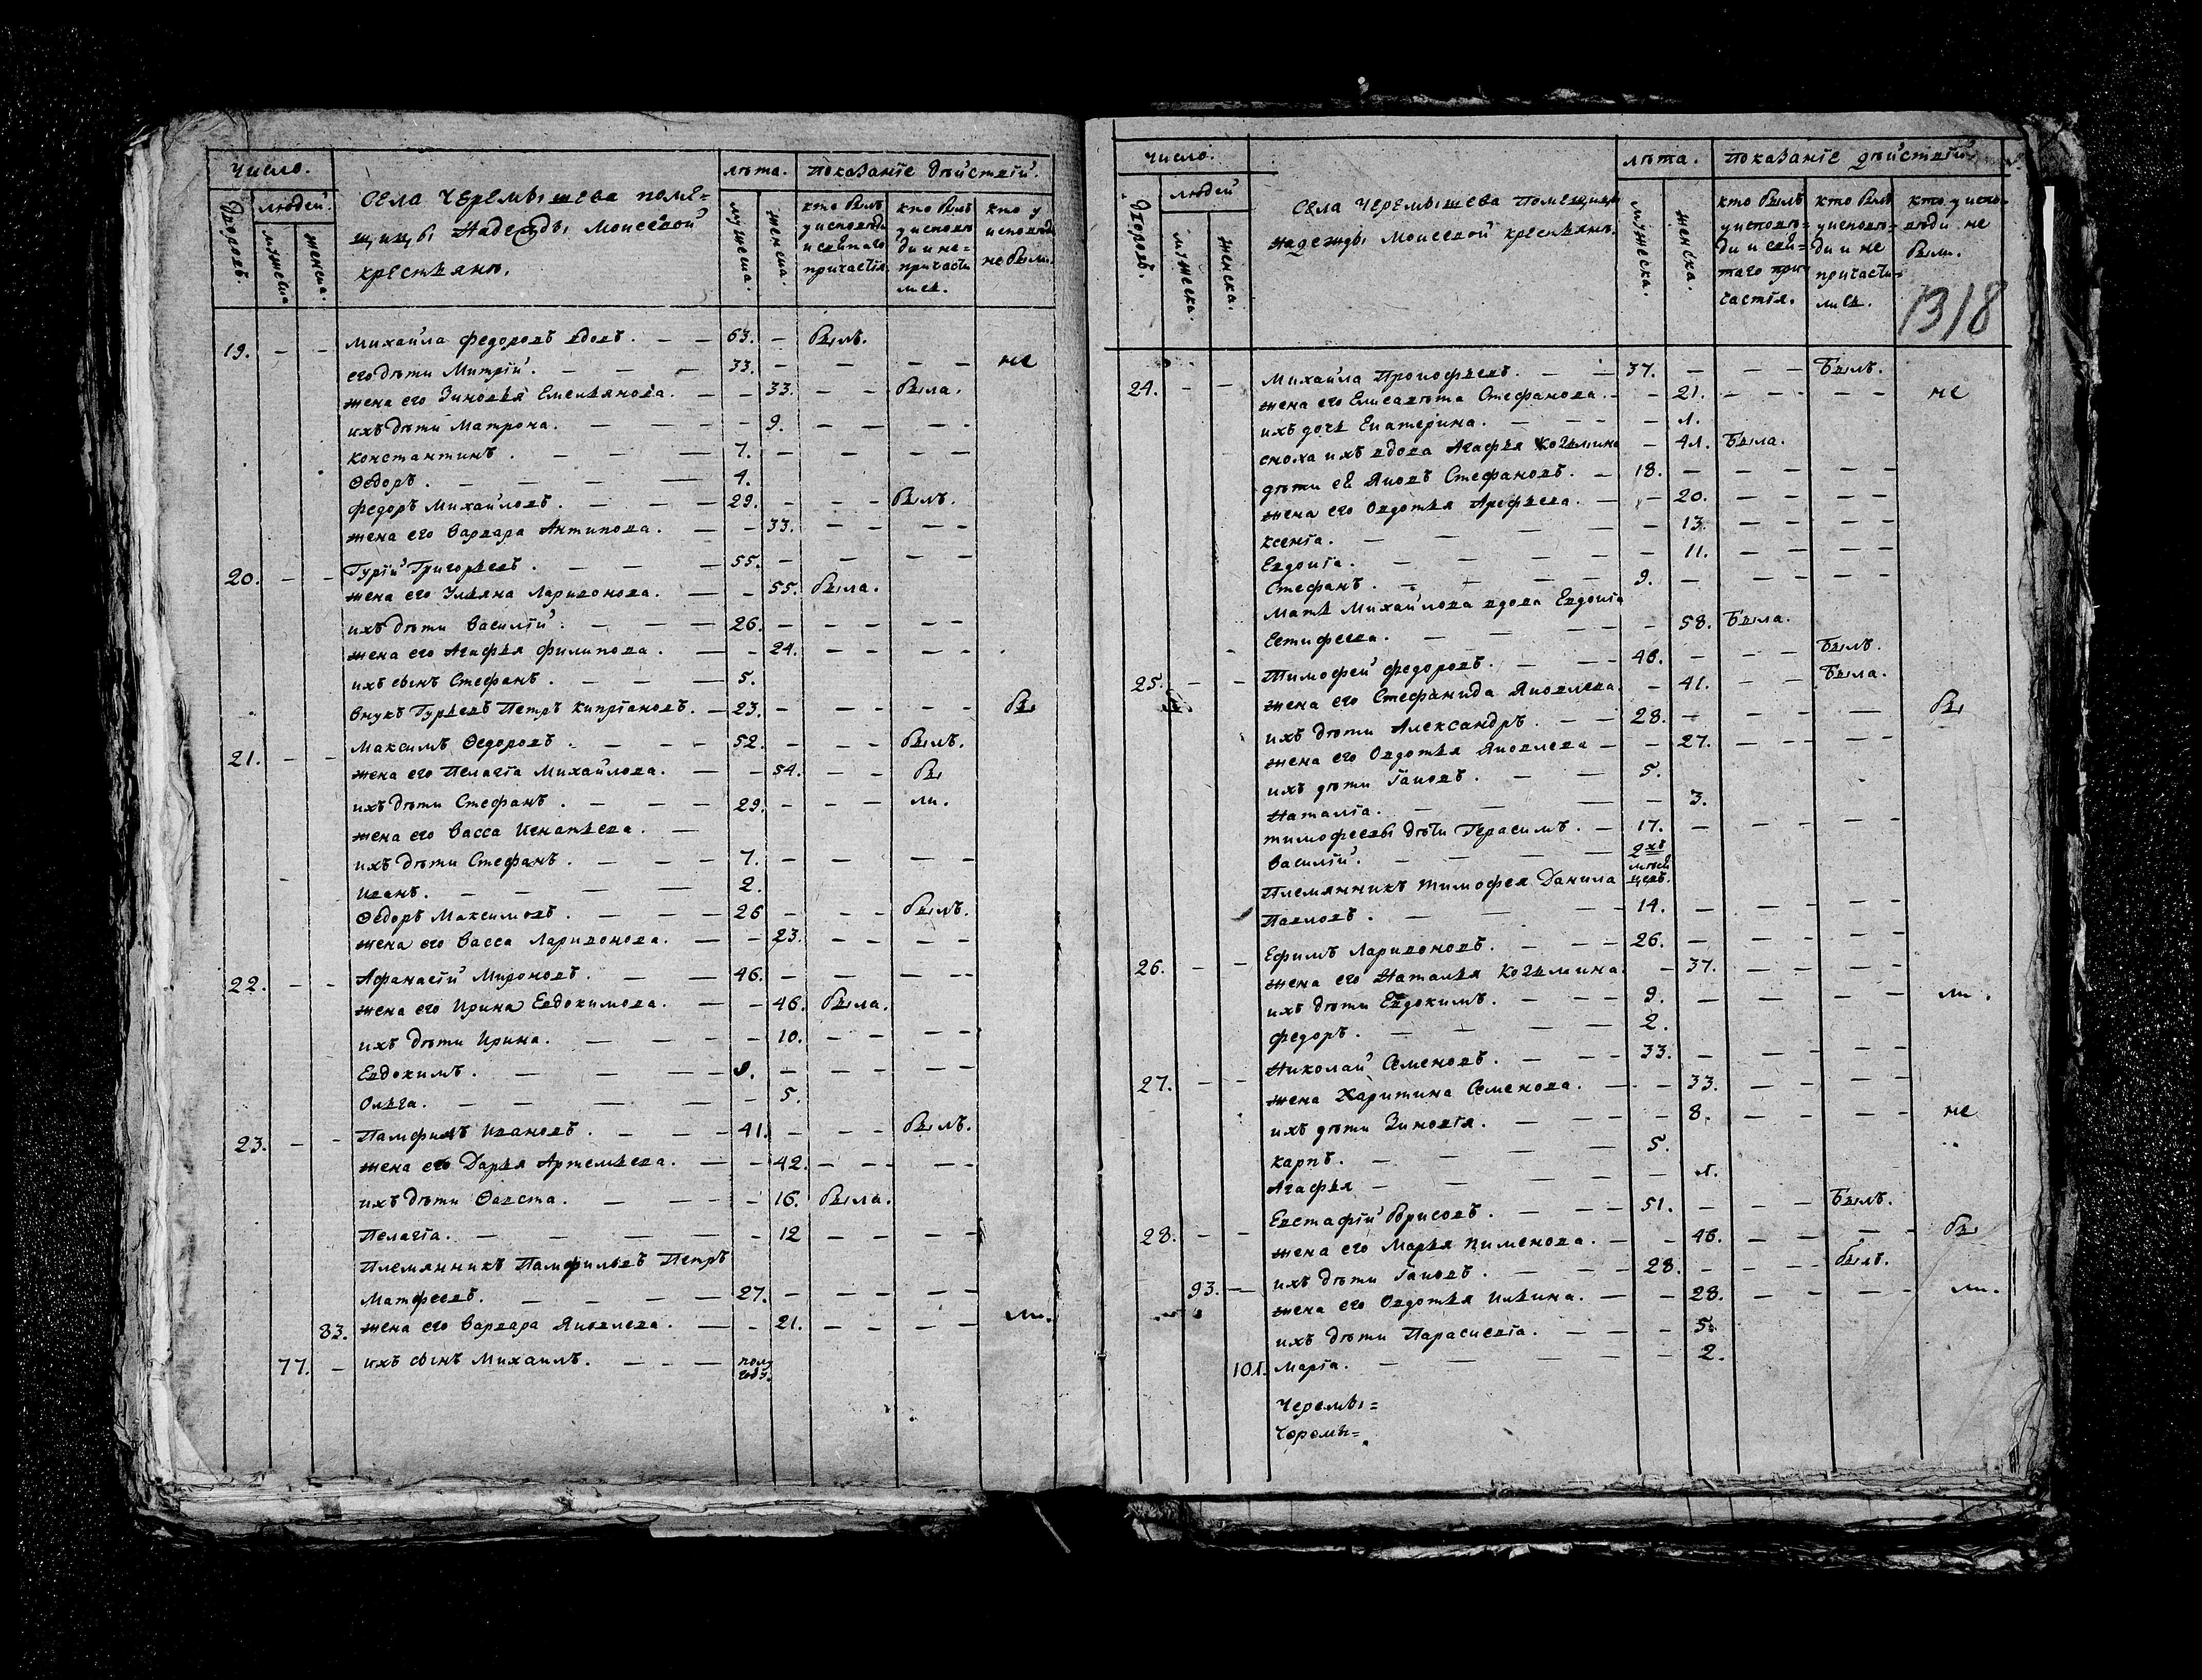 число.
лѣта. показанїе дѣйствїй.
дворовъ.
людей.
мужеска
женска.
села Черемышева поме=
щицы Надежды Моисеевой
крестьянъ.
мужеска.
женска.
кто былъ у исповѣди и святаго причастїя
кто былъ у исповѣди и не причасти лся.
кто у исповѣди не были.
19. – – Михайла Федоровъ вдовъ. – – 63. – былъ.
его дѣти Митрїй. – – – 33. – – – – не
жена его Зиновья Емельянова. – – 33. – – была.
ихъ дѣти Матрона. – – – 9. – – – –
Константинъ. – – – 7. – – – – –
Ѳедоръ. – – – – 4.
Федоръ Михайловъ. – – – 29. – – – былъ.
жена его Варвара Антипова. – – 33. – – – –
20. – – Гурїй Григорьевъ. – – – 55. – – – –
жена его Ульяна Ларивонова. – – 55. была.
ихъ дѣти Василїй. – – – 26. – – – – –
жена его Агафья Филипова. – – 24. – – – –
ихъ сынъ Стефанъ. – – – 5.
внукъ Гурьевъ Петръ Кипрїановъ. – 23. – – – – – бы
21. – – Максимъ Ѳедоровъ. – – – 52. – – – былъ.
жена его Пелагїа Михайлова. – – 54. – – бы
ихъ дѣти Стефанъ. – – – 29. – – – ли.
жена его Васса Игнатьева. –
ихъ дѣти Стефанъ. – – – 7. – – – – –
Иванъ. – – – – 2.
Ѳедоръ Максимовъ. – – – 26 – – – былъ.
жена его Васса Ларивонова. – – 23. – – – –
22. – – Афанасїй Мироновъ. – – 46. – – – – –
жена его Ирина Евдокимова. – – 46. была.
ихъ дѣти Ирина. – – – – 10. – – – –
Евдокимъ. – – – – – – – – –
Ольга. – – – – – 5.
23. – – Памфилъ Ивановъ. – – – 41. – – – былъ.
жена его Дарья Артемьева. – – 42. – – – –
ихъ дѣти Ѳавста. – – – – 16. была.
Пелагїа. – – – – – 12 – – – –
Племянникъ Памфиловъ Петръ
Матфеевъ. – – – – 27. – – – – –
83. жена его Варвара Яковлева. – – 21. – – – – ли.
77. – ихъ сынъ Михаилъ. – – – полу году.
число.
лѣта. показанїе дѣйствїй.
дворовъ.
людей
мужеска.
женска.
села Черемышева Помещицы
Надежды Моисевой крестьянъ.
мужеска.
женска.
кто былъ у исповѣ= ди и свя= таго при= частїя.
кто былъ у исповѣ= ди и не причасти= лися.
кто у испо= вѣди не были.
1318
24. – – Михайла Прокофьевъ. – – 37. – – – былъ.
жена его Елисавѣта Стефанова. – – 21. – – – – не
ихъ дочь Екатерина. – – – – 1.
сноха ихъ вдова Агафья Козьмина – 41. была.
дѣти ея Яковъ Стефановъ. – 18. – – – – –
жена его Овдотья Арефьева. – – 20. – – – –
Ксенїа. – – – – – 13. – – – –
Евдокїа. – – – – – 11. – – – –
Стефанъ. – – – – 9. – – – – –
мать Михайлова вдова Евдокїа
Естифеева. – – – – – 58. была.
25. – – Тимофей Федоровъ. – – – 46. – – – былъ.
жена его Стефанида Яковлева. – 41. – – была.
ихъ дѣти Александръ. – – 28. – – – – бы
жена его Овдотья Яковлева – – 27. – – – –
ихъ дѣти Їаковъ. – – 5.
Наталїа. – – – – 3.
тимофеевы дѣти Герасимъ. – 17. – – – – –
Василїй. – – – – 2хъ мѣся цевъ.
Племянникъ Тимофея Данила
Павловъ. – – – 14. – – – – –
26. – – Ефимъ Ларивоновъ. – – – 26. – – – – –
жена его Наталья Козьмина. – 37. – – – –
ихъ дѣти Евдокимъ. – – – 9. – – – – – ли.
Федоръ. – – – – 2.
27. – – Николай Семеновъ. – – – 33. – – – – –
жена Харитина Семенова. – – 33. – – – –
ихъ дѣти Зиновїя. – – – – 8. – – – – не
Карпъ. – – – – 5.
Агафья – – – – – 1.
28. – – Евстафїй Борисовъ. – – – 51. – – – былъ.
жена его Марья Пименова. – – 46. – – – – бы
93. – ихъ дѣти Їаковъ. – – – 28. – – – былъ.
жена его Овдотья Ильина. – – 28. – – – – ли.
ихъ дѣти Парасковїа. – – – 5.
101. Марїа. – – – – – 2.
Черемы=